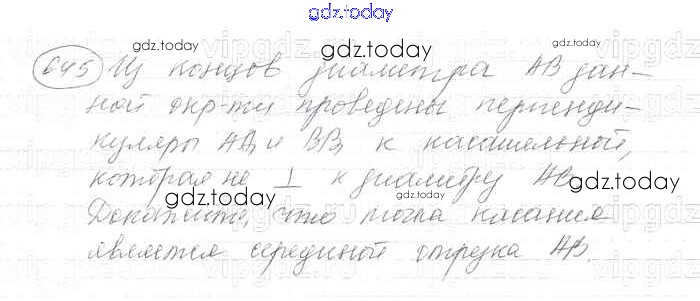 gdz.today
gdz.today
gdz.today
645 Из концов диаметра AB дан-
ной окр-ти проведены перпенди-
куляры AA₁ и BB₁ к касательной,
которая не ⊥ к диаметру AB.
gdz.today
gdz.today
Докажите, что точка касания
является серединой отрезка AB.
gdz.today
gdz.today